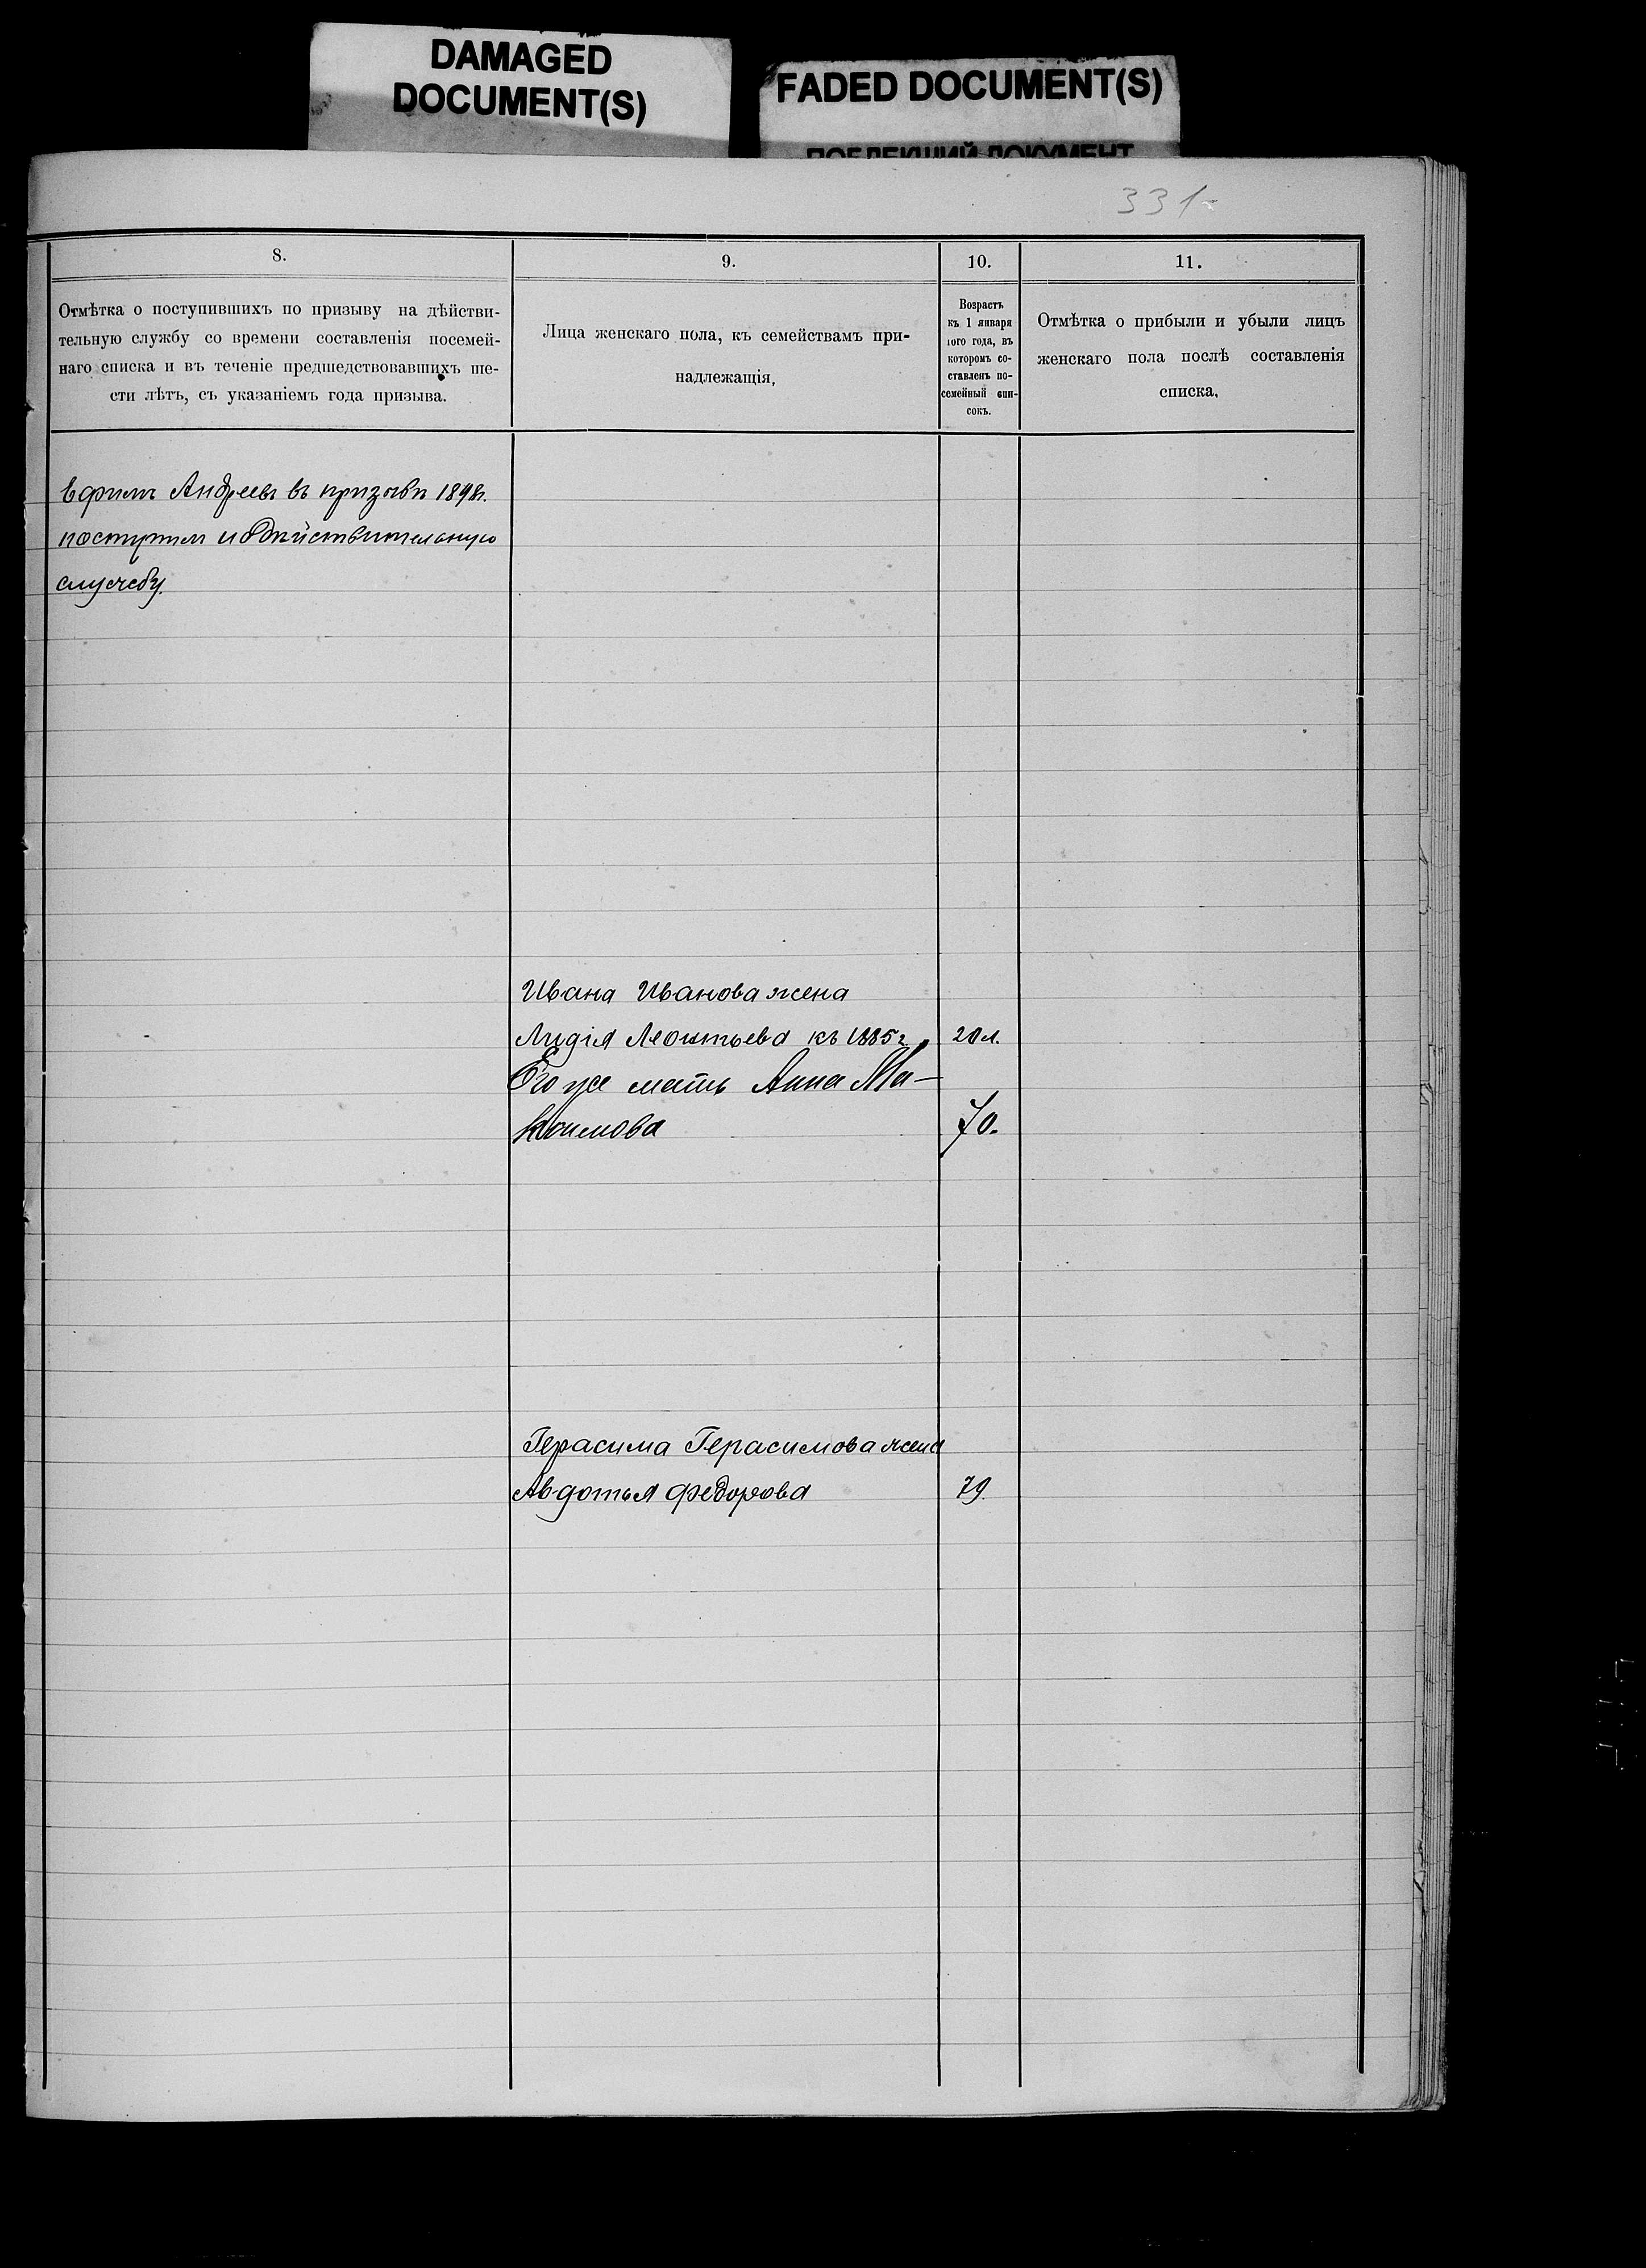 DAMAGED
DOCUMENT(S)
FADED DOCUMENT(S)
ПОБЛЕКШИЙ ДОКУМЕНТ
331
8.
Отмѣтка о поступившихъ по призыву на дѣйстви-
тельную службу со времени составленія посемей-
наго списка и въ теченіе предшедствовавшихъ ше-
сти лѣтъ, съ указаніемъ года призыва.
9.
Лица женскаго пола, къ семействамъ при-
надлежащія,
10.
Возрастъ
къ 1 января
того года, въ
которомъ со-
ставленъ по-
семейный спи-
сокъ.
11.
Отмѣтка о прибыли и убыли лицъ
женскаго пола послѣ составленія
списка.
Ефимъ Андреевъ въ призывъ 1898г.
поступилъ на дѣйствительную
службу.
Ивана Иванова жена
Лидія Леонтьева къ 1885г. 20 л.
Его же мать Анна Ма-
ксимова 70.
Герасима Герасимова жена
Авдотья Федорова 79.